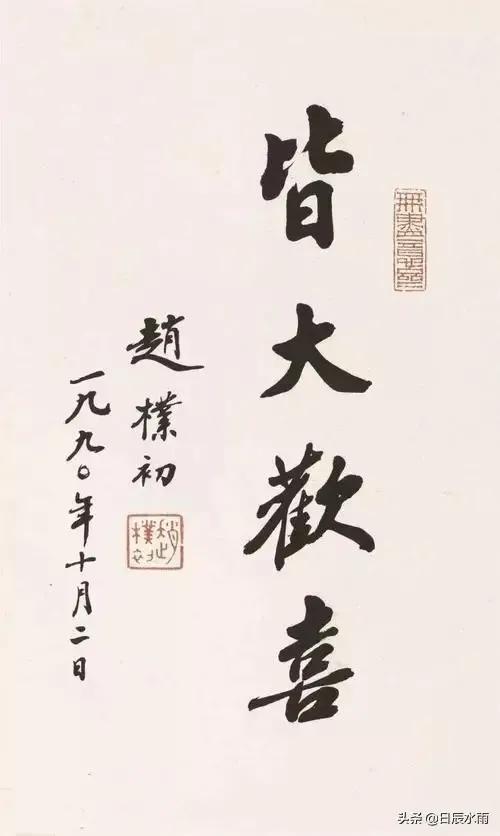 皆大歡喜
趙樸初
一九九〇年十月二日
趙樸初
头条 @日辰水雨